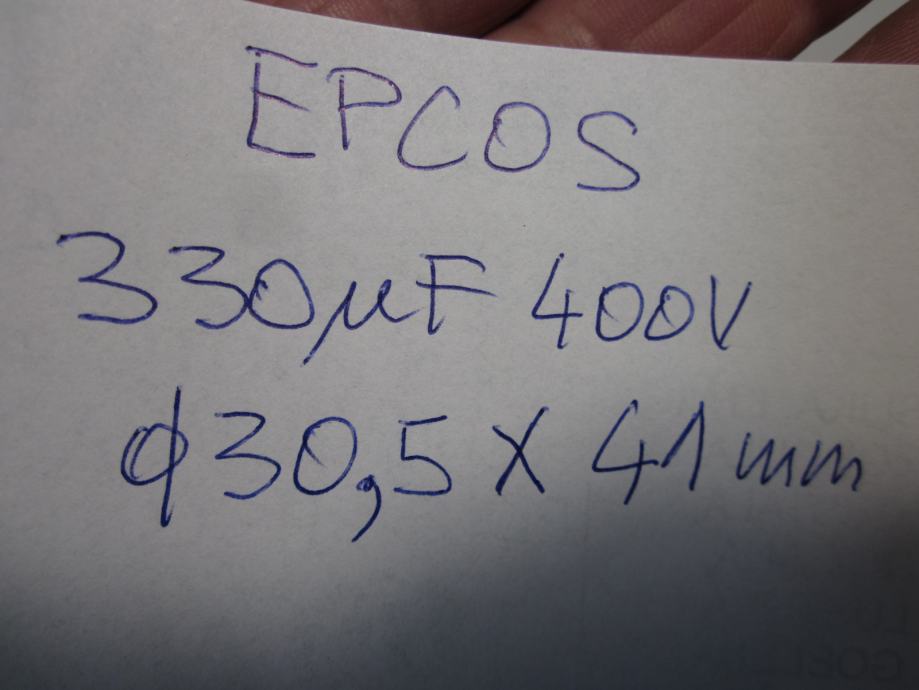 EPCOS
330µF 400V
ϕ30,5 X 41mm